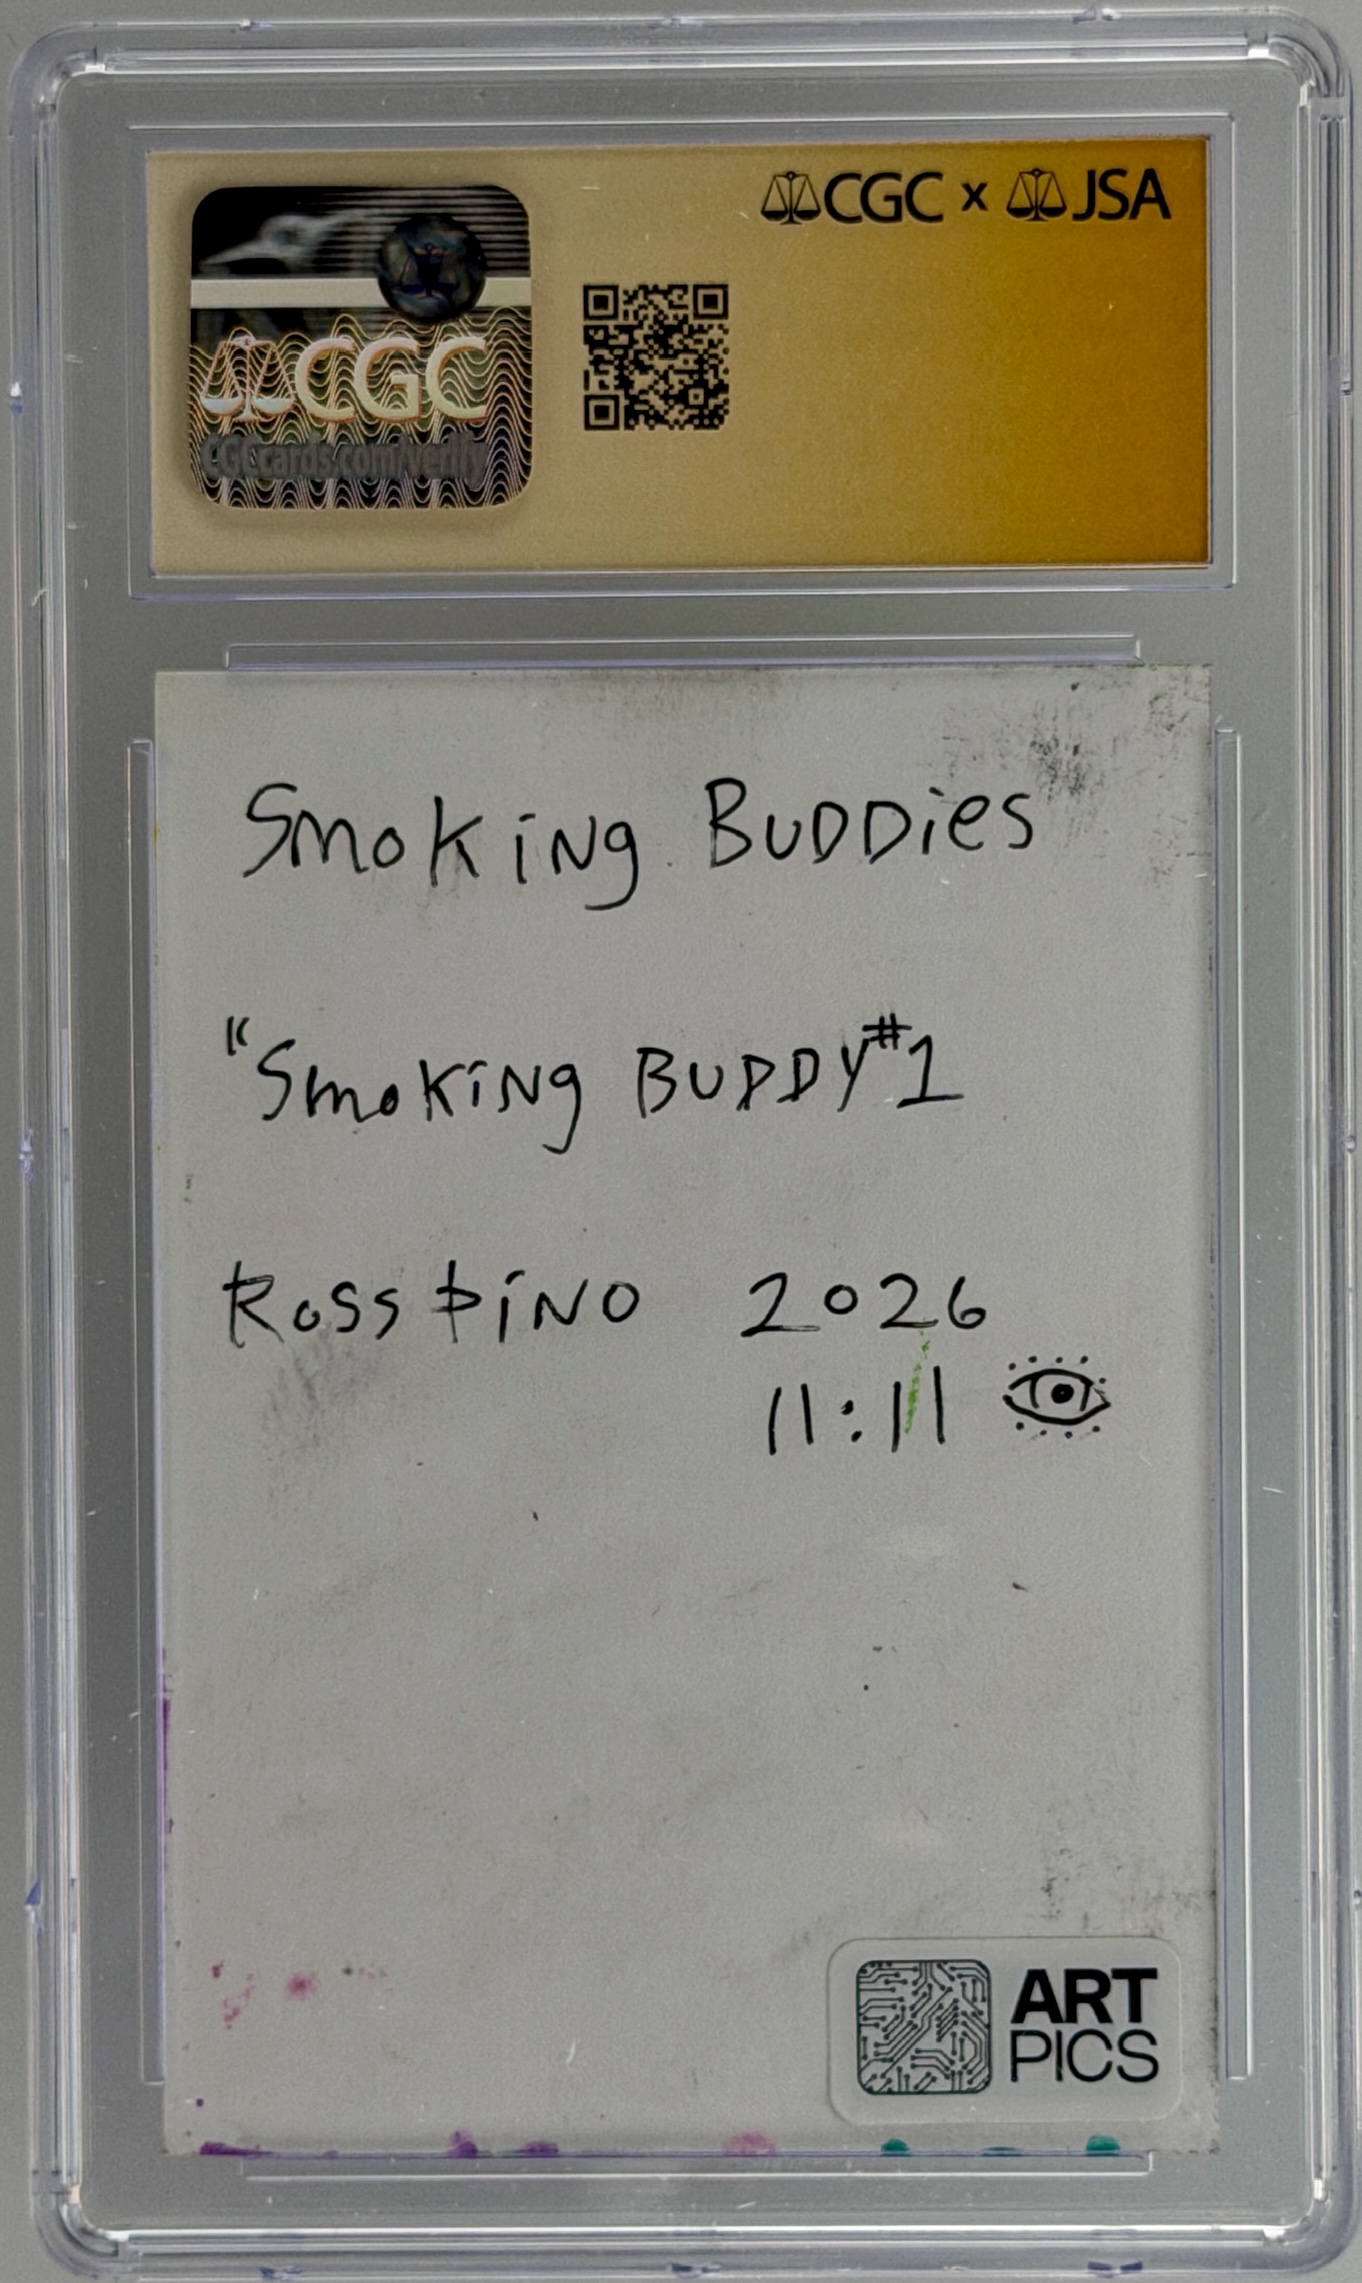 CGC x JSA
CGC
CGCcards.com/verify
Smoking BUDDies
"Smoking BUDDY #1
Ross Pino 2026
11:11
ART
PICS